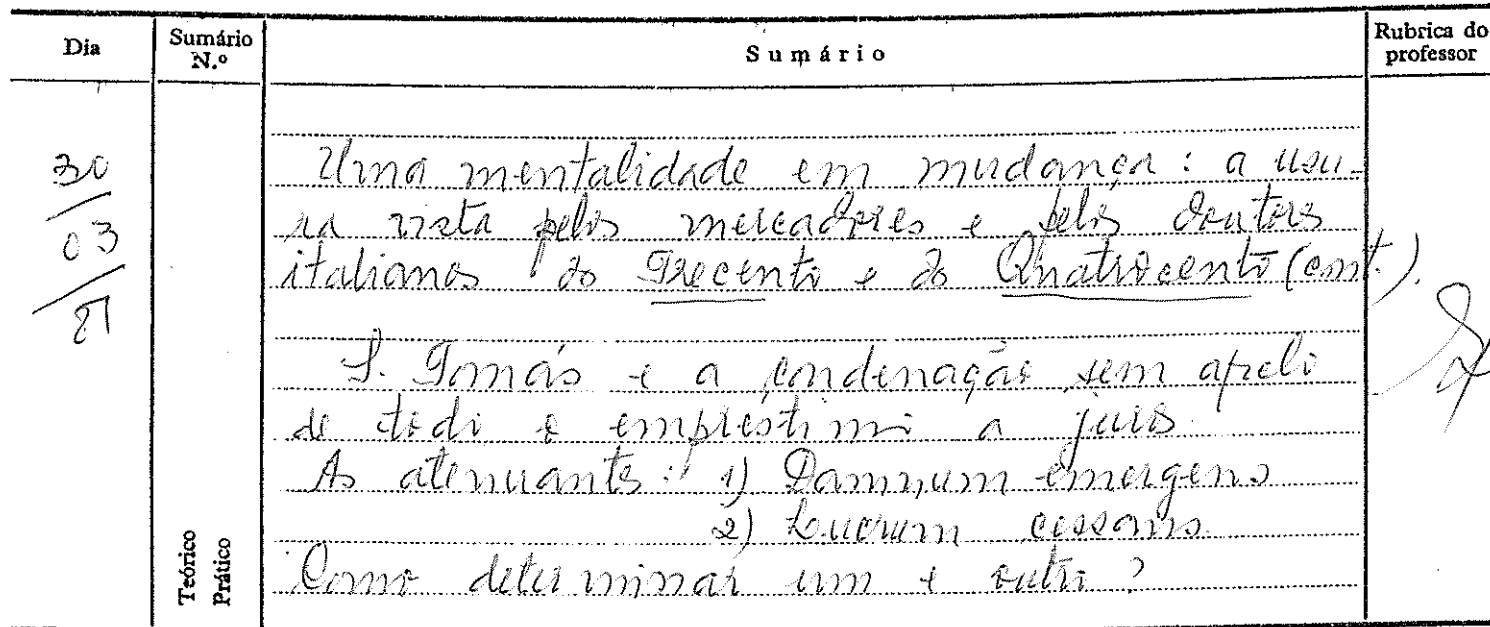 Dia
Sumário N.º
Sumário
Rubrica do professor
30
03
81
Uma mentalidade em mudança: a usu-
ra vista pelos mercadores e pelos doutores
italianos do Trecento e do Quatrocento (cont.).
S. Tomás e a condenação sem apelo
de todo o empréstimo a juros.
As atenuantes: 1) Damnum emergens
2) Lucrum cessans
Como determinar um e outro?
Teórico
Prático